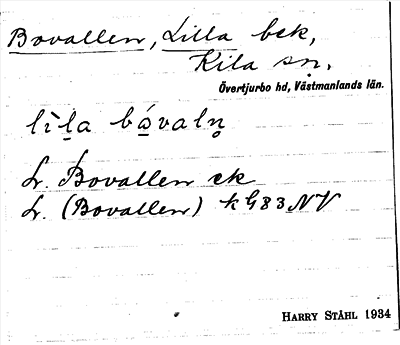 Bovallen, Lilla bek,
Kila sn.
Övertjurbo hd, Västmanlands län.
lìla bávaln̥
L. Bovallen ek
L. (Bovallen) k G83 NV
HARRY STÅHL 1934